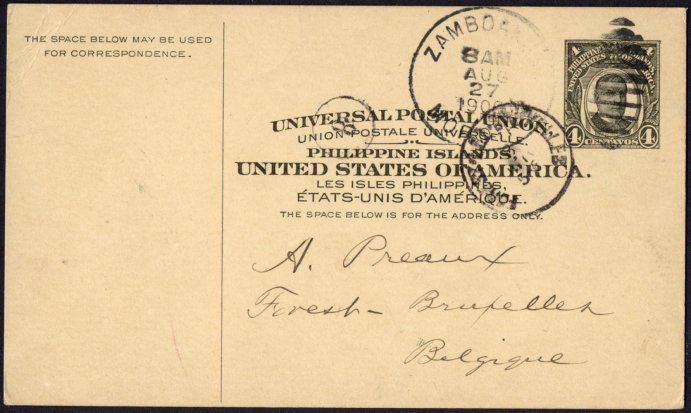 THE SPACE BELOW MAY BE USED
FOR CORRESPONDENCE.
ZAMBOA
8 AM
AUG
27
190
MO
4 4
PHILIPPINE ISLANDS
UNITED STATES OF AMERICA
4 CENTAVOS 4
UNIVERSAL POSTAL UNION.
UNION POSTALE UNIVERSELLE.
PHILIPPINE ISLANDS,
UNITED STATES OF AMERICA.
LES ISLES PHILIPPINES,
ÉTATS-UNIS D'AMÉRIQUE.
THE SPACE BELOW IS FOR THE ADDRESS ONLY.
A. Preaux
Forest - Bruxelles
Belgique